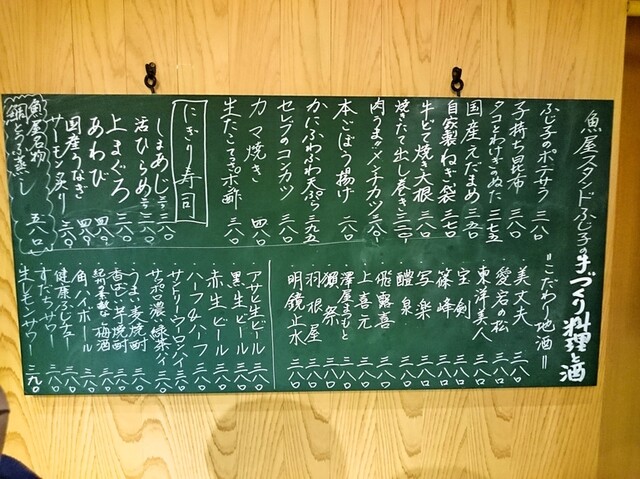 魚屋スタンドふじ子の手づくり料理と酒
ふじ子のポテサラ 三八〇
子持ち昆布 三八〇
タコとわけぎのぬた 三七五
国産えだまめ 三五〇
自家製ねぎ袋 三七〇
牛すじ焼き大根 三八〇
焼きたて出し巻き 三二〇
肉うま!!メンチカツ 三八〇
本ごぼう揚げ 二八〇
かにふわふわ天ぷら 三九五
セレブのコンカツ 三八〇
カマ焼き 四八〇
生たこてっさポン酢
にぎり寿司
しまあじ 二八〇
活ひらめ 二八〇
上まぐろ 二八〇
あわび 四八〇
国産うなぎ 四八〇
サーモン炙り 二八〇
魚屋名物
鯛とうふ蒸し 五八〇
=こだわり地酒=
美丈夫 三八〇
愛宕の松 三八〇
東洋美人 三八〇
宝剣 三八〇
篠峰 三八〇
写楽 三八〇
醴泉 三八〇
飛露喜 三八〇
上喜元 三八〇
澤屋まつもと 三八〇
獺祭 三八〇
羽根屋 三八〇
明鏡止水 三八〇
アサヒ生ビール 三八〇
黒生ビール 三八〇
赤生ビール 三八〇
ハーフ&ハーフ 三八〇
サントリーウーロンハイ 三八〇
サッポロ濃い緑茶ハイ 三八〇
うまい麦焼酎 三八〇
香ばしい芋焼酎 三八〇
紀州素敵な梅酒 三八〇
角ハイボール 三八〇
健康コラーゲンチュー 三八〇
すだちサワー 三八〇
生レモンサワー 三九〇